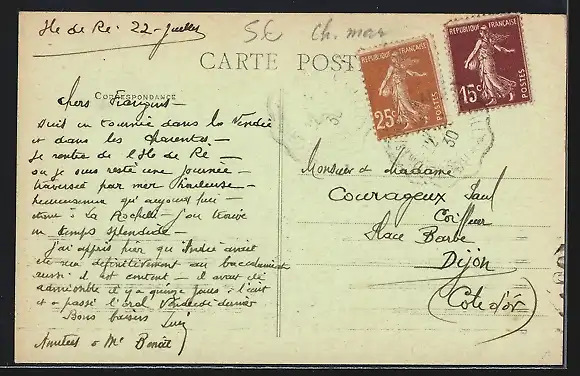 Ile de Ré 22 Juillet
5€ Ch. mar
CARTE POST
CORRESPONDANCE
RÉPUBLIQUE FRANÇAISE
25c
POSTES
RÉPUBLIQUE FRANÇAISE
15c
POSTES
30
Chers
Suis en tournée dans la Vendée
et dans les Charentes
Je rentre de l'Ile de Ré
où je suis resté une journée
traversée par mer
heureusement qu'aujourd'hui
à la Rochelle j'ai trouvé
un temps splendide
J'ai appris hier qu'André avait
été reçu définitivement au baccalauréat
aussi il est content il avait été
admissible il y a quinze jours à l'écrit
et a passé l'oral Vendredi dernier
Bons baisers
Amitiés à Me Benoit
Monsieur et Madame
Courageux Paul
Coiffeur
Place Barbe
Dijon
(Cote d'or)